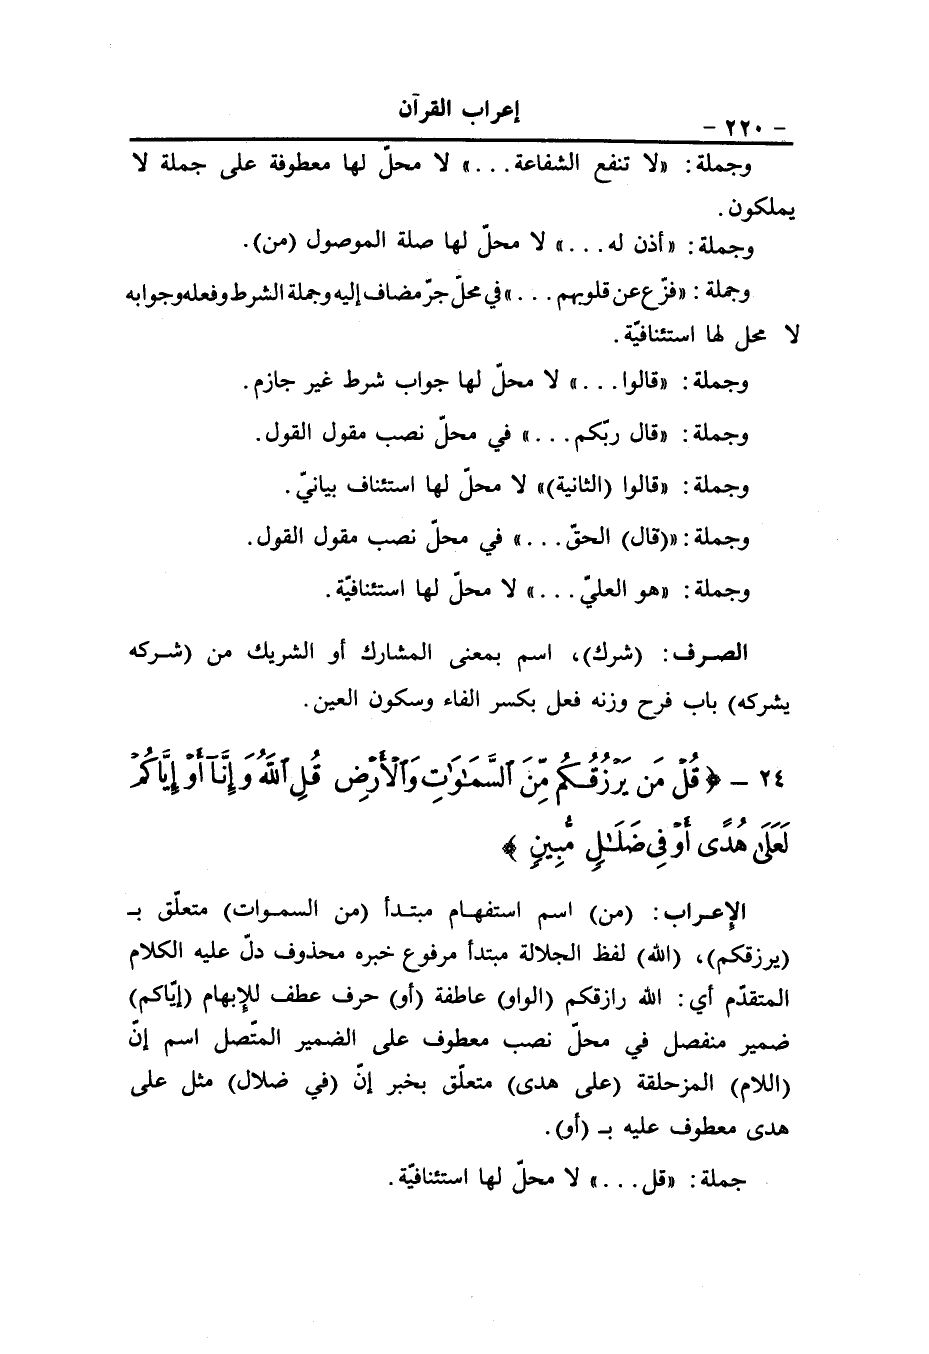 إعراب القرآن
- ٢٢٠ -
وجملة: «لا تنفع الشفاعة...» لا محلّ لها معطوفة على جملة لا
يملكون.
وجملة: «أذن له...» لا محلّ لها صلة الموصول (من).
وجملة: «فزّع عن قلوبهم...» في محلّ جرّ مضاف إليه وجملة الشرط وفعله وجوابه
لا محل لها استئنافيّة.
وجملة: «قالوا...» لا محلّ لها جواب شرط غير جازم.
وجملة: «قال ربّكم...» في محلّ نصب مقول القول.
وجملة: «قالوا (الثانية)» لا محلّ لها استئناف بيانيّ.
وجملة: «(قال) الحقّ...» في محلّ نصب مقول القول.
وجملة: «هو العليّ...» لا محلّ لها استئنافيّة.
الصرف: (شرك)، اسم بمعنى المشارك أو الشريك من (شركه
يشركه) باب فرح وزنه فعل بكسر الفاء وسكون العين.
٢٤ - ﴿ قُلْ مَن يَرْزُقُكُم مِّنَ ٱلسَّمَٰوَٰتِ وَٱلْأَرْضِ قُلِ ٱللَّهُ وَإِنَّآ أَوْ إِيَّاكُمْ
لَعَلَىٰ هُدًى أَوْ فِى ضَلَٰلٍ مُّبِينٍ ﴾
الإعراب: (من) اسم استفهام مبتدأ (من السموات) متعلّق بـ
(يرزقكم)، (الله) لفظ الجلالة مبتدأ مرفوع خبره محذوف دلّ عليه الكلام
المتقدّم أي: الله رازقكم (الواو) عاطفة (أو) حرف عطف للإبهام (إيّاكم)
ضمير منفصل في محلّ نصب معطوف على الضمير المتّصل اسم إنّ
(اللام) المزحلقة (على هدى) متعلّق بخبر إنّ (في ضلال) مثل على
هدى معطوف عليه بـ (أو).
جملة: «قل...» لا محلّ لها استئنافيّة.